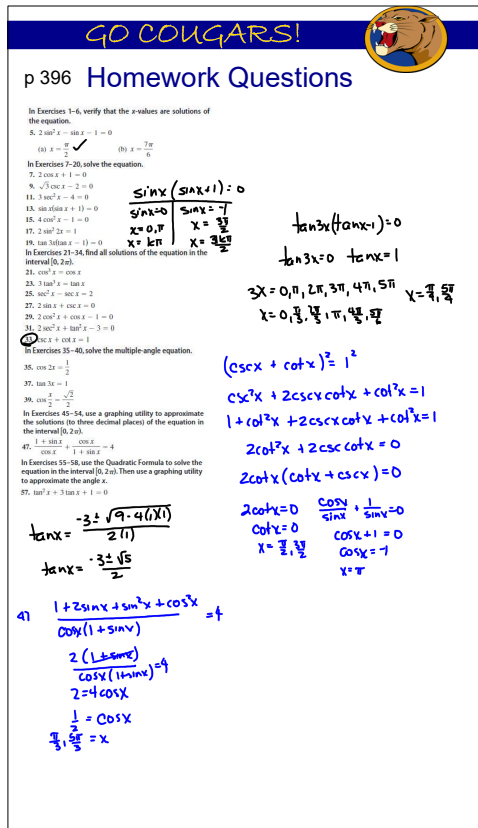 GO COUGARS!
p 396 Homework Questions
In Exercises 1–6, verify that the x-values are solutions of
the equation.
5. 2 sin² x − sin x − 1 = 0
(a) x = π/2 ✓ (b) x = 7π/6
In Exercises 7–20, solve the equation.
7. 2 cos x + 1 = 0
9. √3 csc x − 2 = 0
11. 3 sec² x − 4 = 0
13. sin x(sin x + 1) = 0
15. 4 cos² x − 1 = 0
17. 2 sin² 2x = 1
19. tan 3x(tan x − 1) = 0
In Exercises 21–34, find all solutions of the equation in the
interval [0, 2π).
21. cos³ x = cos x
23. 3 tan³ x = tan x
25. sec² x − sec x = 2
27. 2 sin x + csc x = 0
29. 2 cos² x + cos x − 1 = 0
31. 2 sec² x + tan² x − 3 = 0
33. csc x + cot x = 1
In Exercises 35–40, solve the multiple-angle equation.
35. cos 2x = 1/2
37. tan 3x = 1
39. cos x/2 = √2/2
In Exercises 45–54, use a graphing utility to approximate
the solutions (to three decimal places) of the equation in
the interval [0, 2π).
47. (1 + sin x)/cos x + cos x/(1 + sin x) = 4
In Exercises 55–58, use the Quadratic Formula to solve the
equation in the interval [0, 2π). Then use a graphing utility
to approximate the angle x.
57. tan² x + 3 tan x + 1 = 0
sinx (sinx+1) = 0
sinx=0 sinx = -1
x=0,π x = 3π/2
x= kπ
tan3x(tanx-1)=0
tan3x=0 tanx=1
3x=0,π,2π,3π,4π,5π x=π/4,5π/4
x=0,π/3,2π/3,π,4π/3,5π/3
(cscx + cotx)² = 1²
csc²x + 2cscxcotx + cot²x = 1
1+cot²x +2cscxcotx +cot²x=1
2cot²x +2csc cotx = 0
2cotx (cotx + cscx) = 0
2cotx=0 cosx/sinx + 1/sinx=0
cotx=0 cosx+1 = 0
x= π/2, 3π/2 cosx = -1
x=π
tanx = -3± √9-4(1)(1) / 2(1)
tanx= -3± √5 / 2
47 1+2sinx+sin²x+cos²x / cosx(1+sinx) =4
2(1+sinx) / cosx(1+sinx) =4
2=4cosx
1/2 = cosx
π/3, 5π/3 = x